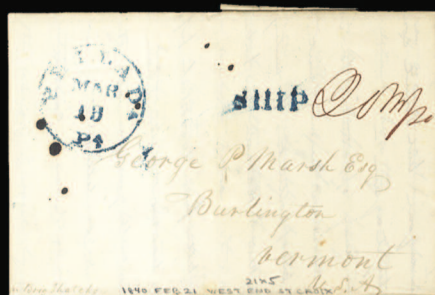 PHILADA
MAR
19
PA
SHIP
George P Marsh Esq
Burlington
Vermont
U.S.A
21x5
1840 FEB 21 WEST END ST CROIX